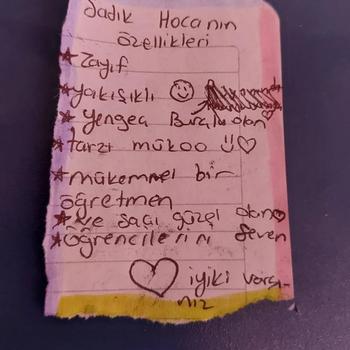 Sadık Hocanın
özellikleri
★ Zayıf
★ yakışıklı
★ yengeç Burcu olan
★ tarzı mükoo ü♡
★ mükemmel bir
öğretmen
★ ve saçı güzel olan
★ öğrencilerini seven
♡ iyiki varsı-
nız